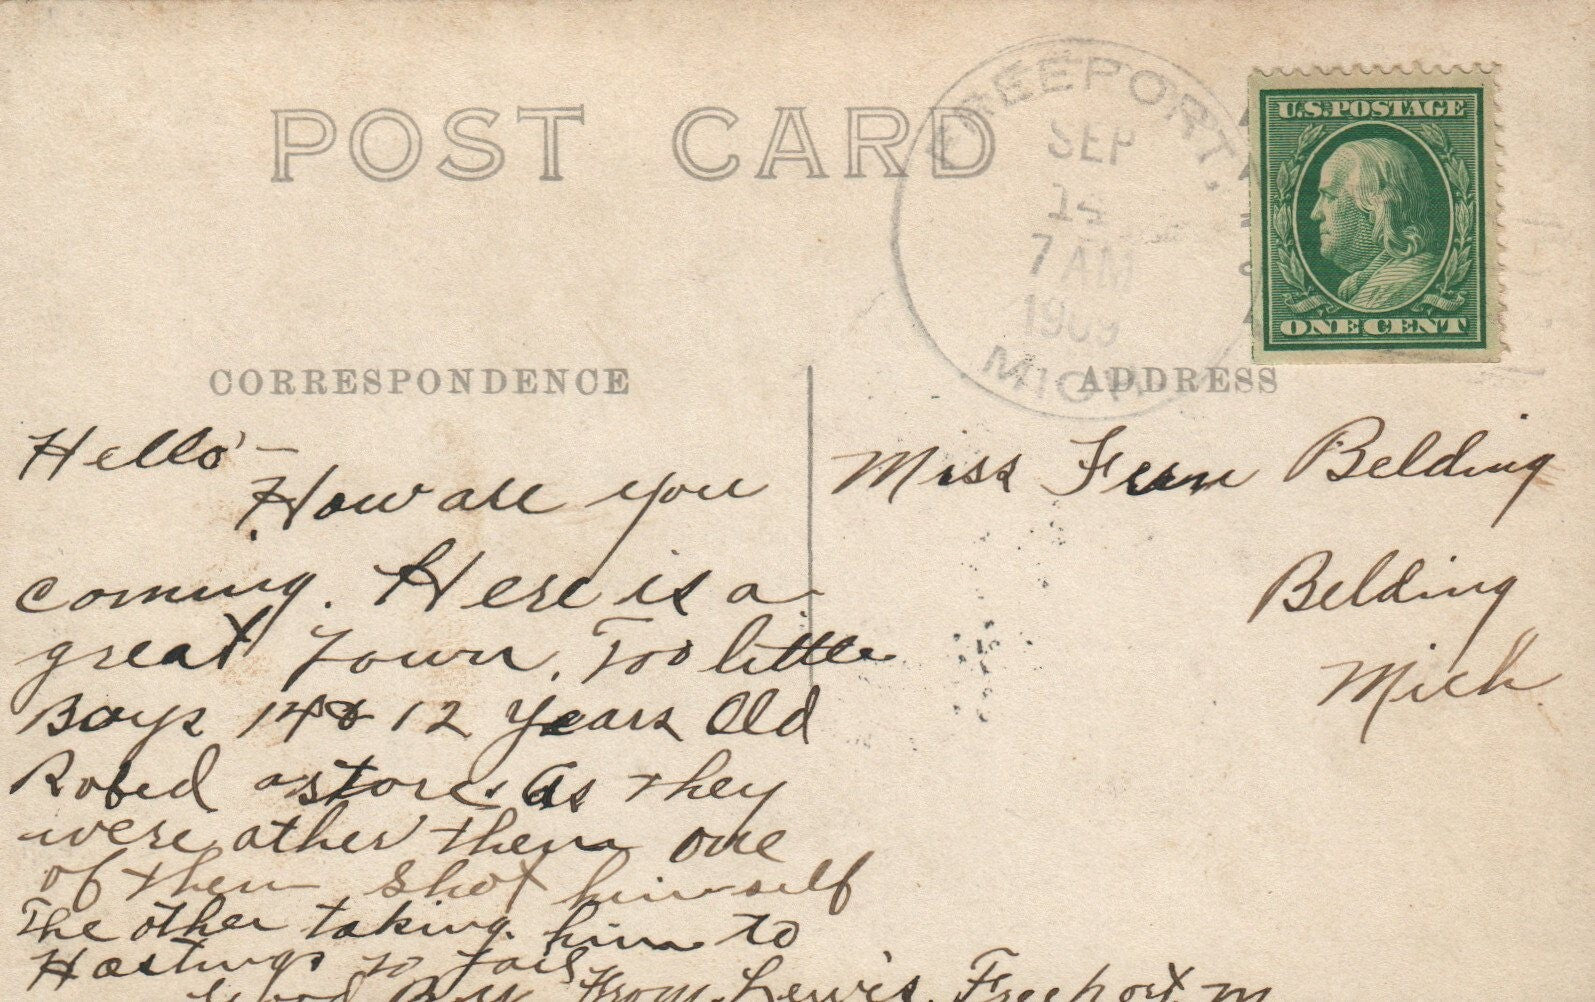 POST CARD
FREEPORT,
SEP
14
7 AM
1909
MICH.
U.S. POSTAGE
ONE CENT
CORRESPONDENCE
ADDRESS
Hello -
How are you
coming. Here is a
great Town. Too little
Boys 14 & 12 years Old
Robed a store. As they
were other them one
of them shot himself
The other taking him to
Hastings to Jail
Good By From Lewis. Freeport M
Miss Fern Belding
Belding
Mich